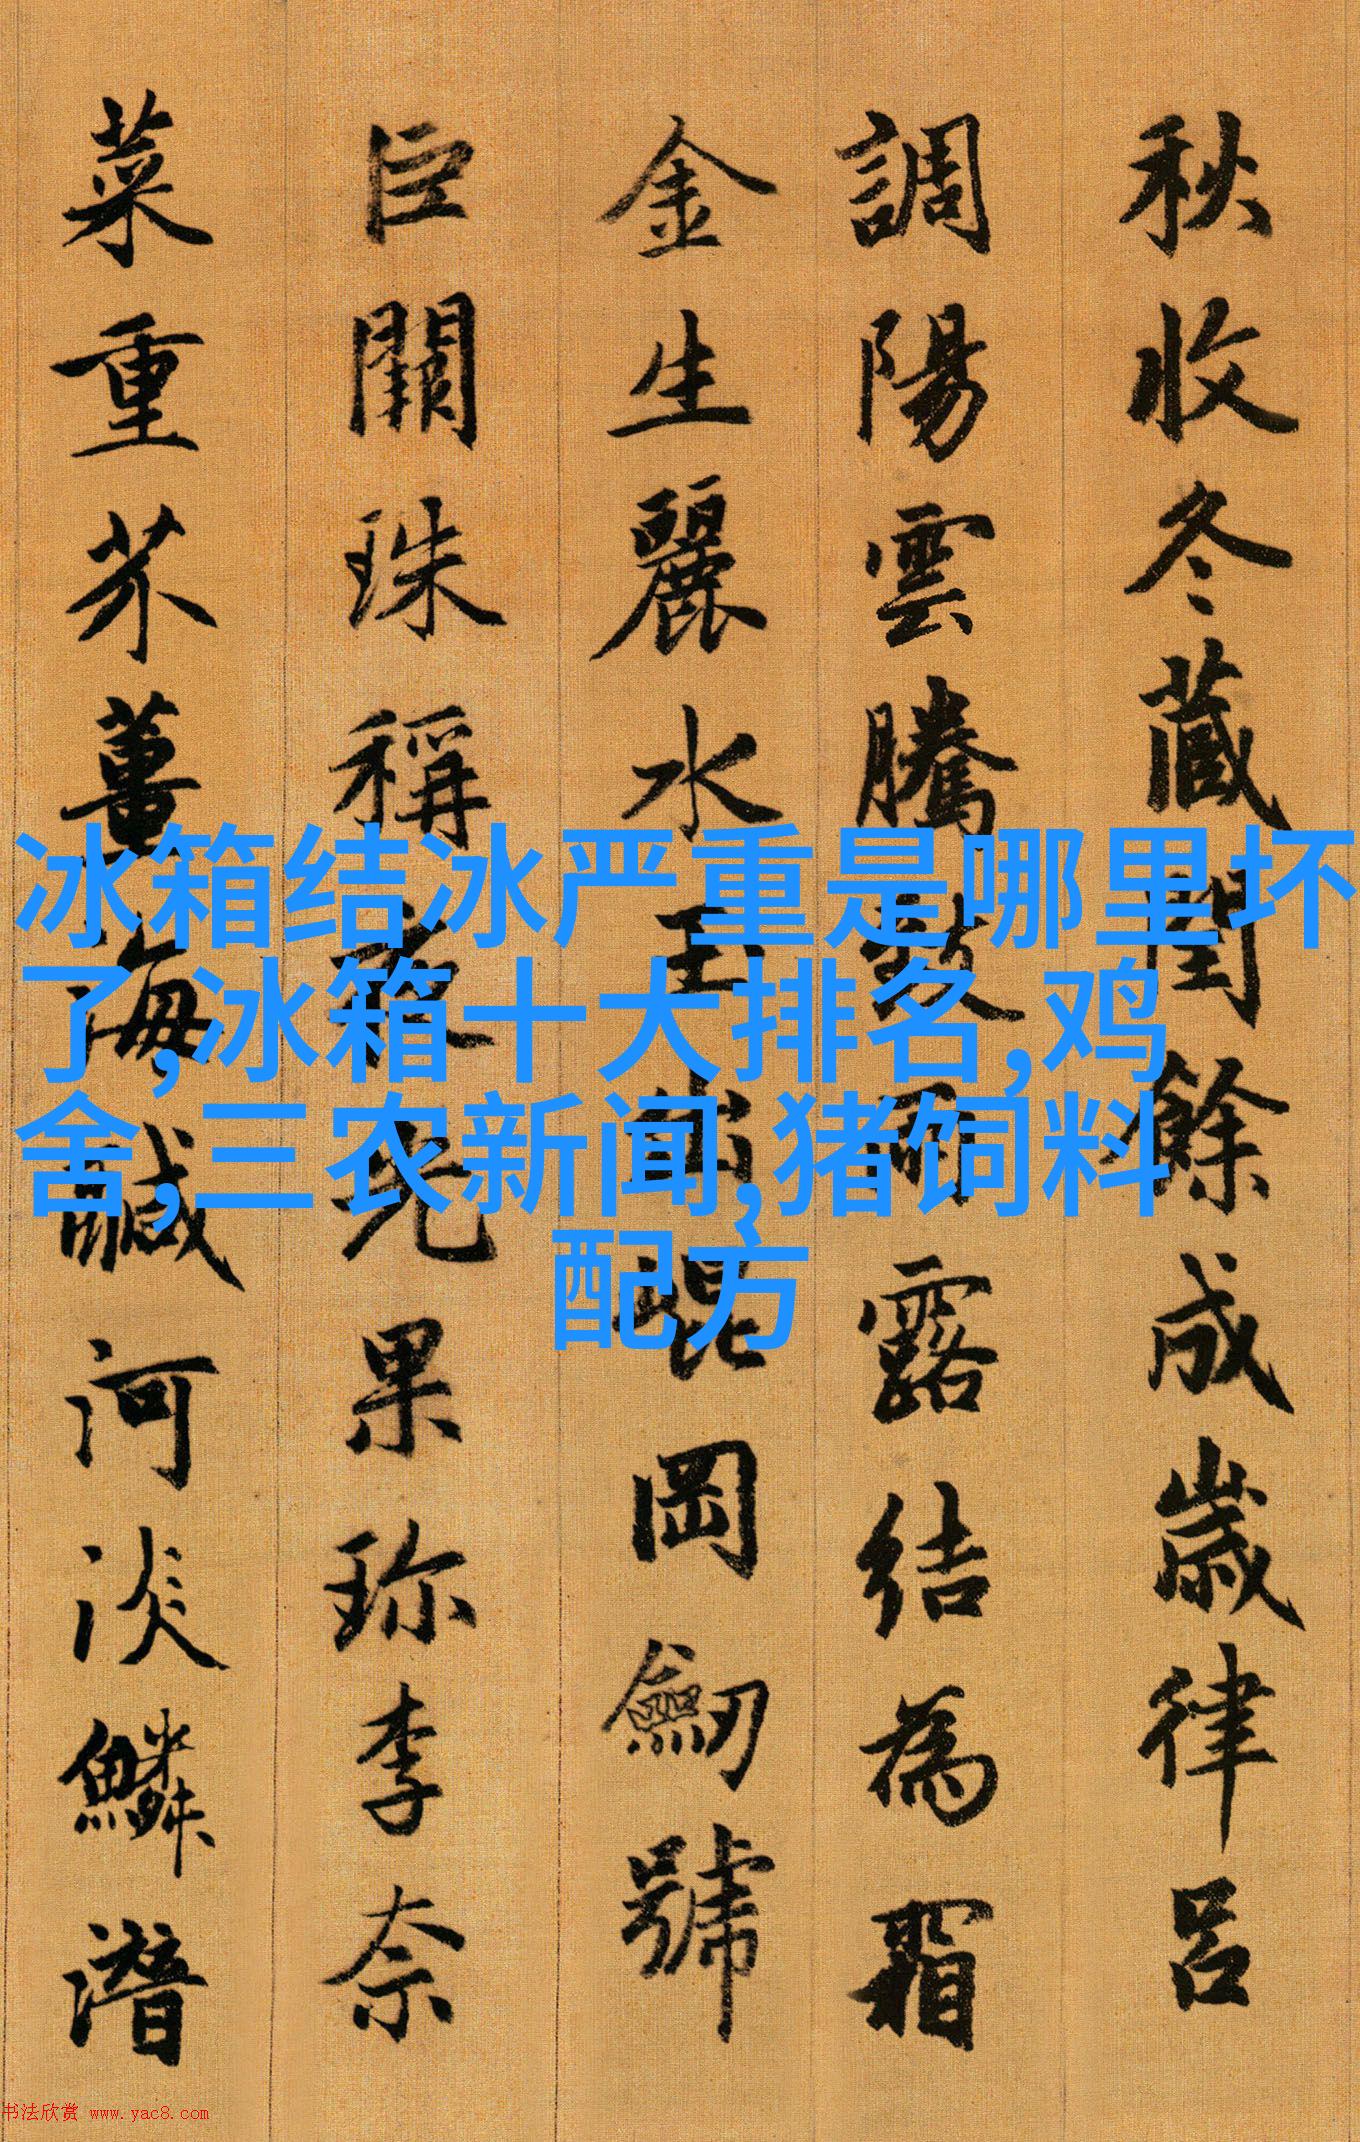 秋收冬藏閏餘成歲律呂
調陽雲騰致雨露結為霜
金生麗水玉出崑岡劒號
巨闕珠稱夜光果珎李柰
菜重芥薑海鹹河淡鱗潛
冰箱结冰严重是哪里坏
了,冰箱十大排名,鸡
舍,三农新闻,猪饲料
配方
书法欣赏 www.yac8.com